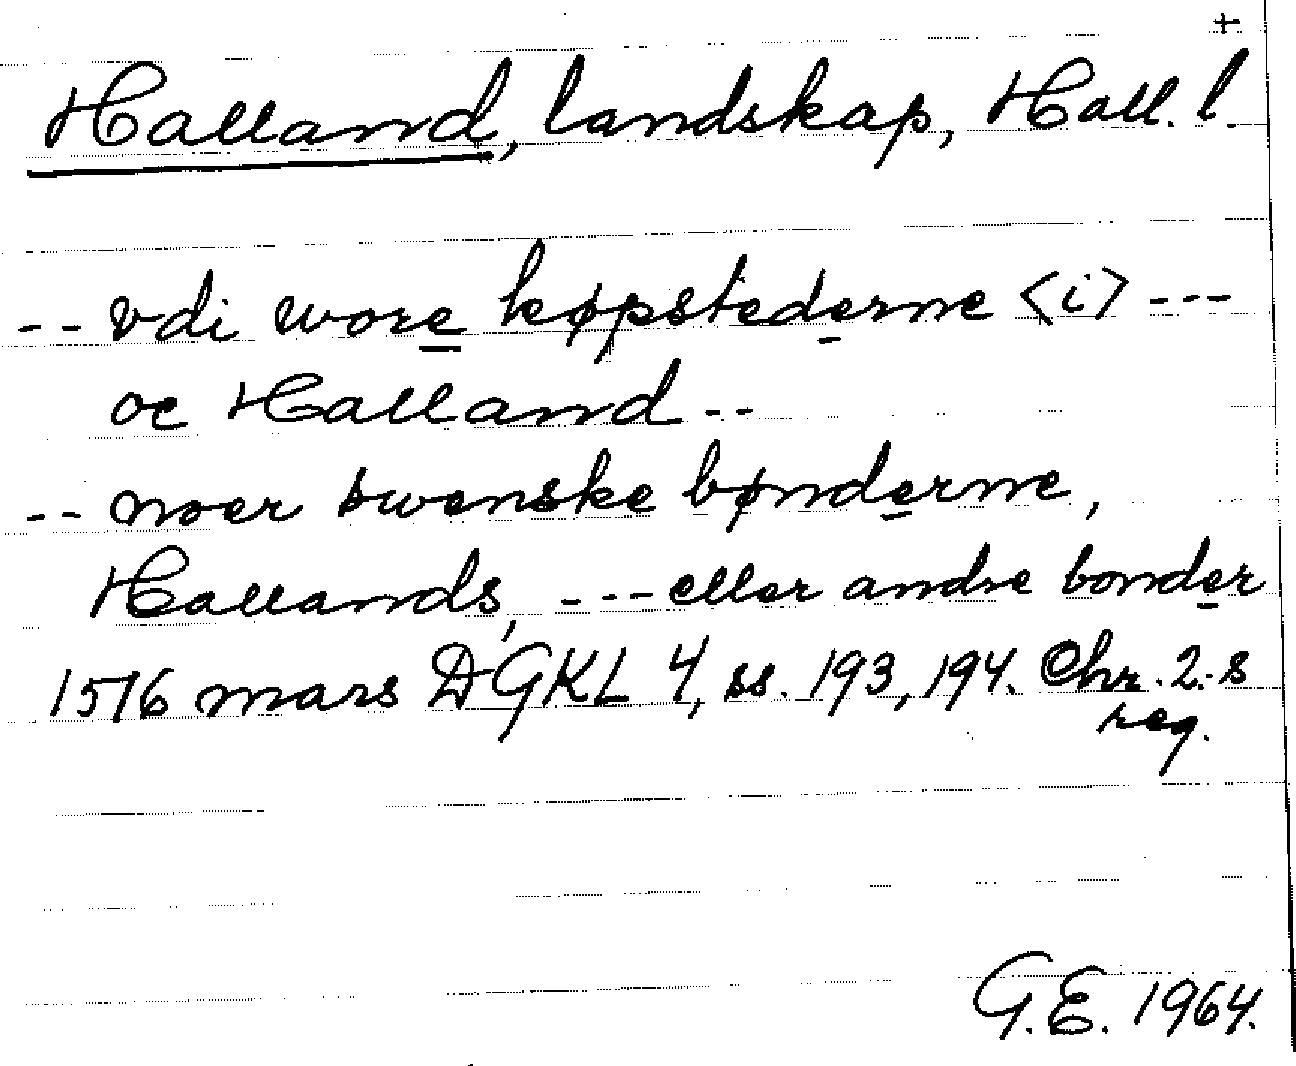 +
Halland, landskap, Hall. l.
-- vdi wore køpstederne <i> ---
oc Halland --
-- noer swenske bønderne,
Hallands, --- eller andre bonder
1516 mars DGKL 4, ss. 193, 194. Chr. 2.s
reg.
G.E. 1964.